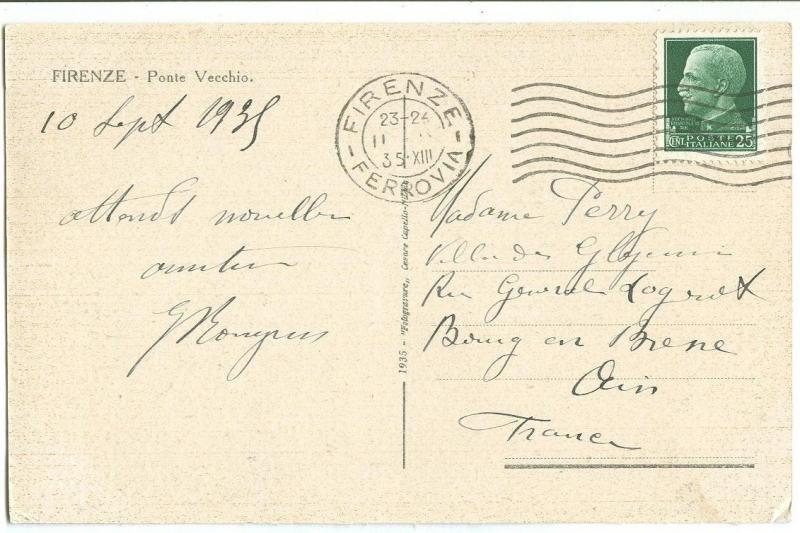 FIRENZE - Ponte Vecchio.
10 Sept 1935
attends nouvelles
amitiés
FIRENZE
23-24
11
35 XIII
FERROVIA
POSTE
ITALIANE
CENT. 25
1935 - "Fotogravure„ Cesare Capello-Milano
Madame Perry
Villa des Glycines
Rue General Logerot
Bourg en Bresse
Ain
France